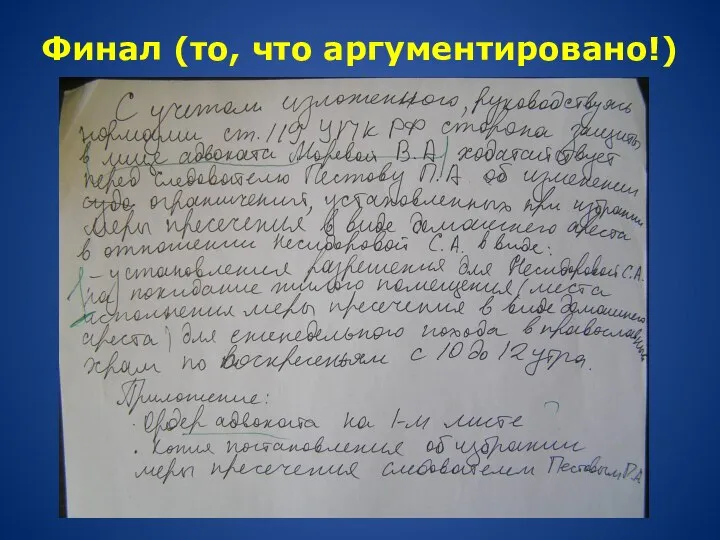 Финал (то, что аргументировано!)
С учетом изложенного, руководствуясь
нормами ст. 119 УПК РФ сторона защиты
в лице адвоката Моревой В.А ходатайствует
перед следователю Пестову П.А об изменении
ограничений, установленных при избрании
меры пресечения в виде домашнего ареста
в отношении Несидоровой С.А. в виде:
- установления разрешения для Несидоровой С.А.
на покидание жилого помещения (места
исполнения меры пресечения в виде домашнего
ареста) для еженедельного похода в православный
храм по воскресеньям с 10 до 12 утра.
Приложение:
· Ордер адвоката на 1-м листе
• Копия постановления об избрании
меры пресечения следователем Пестовым П.А